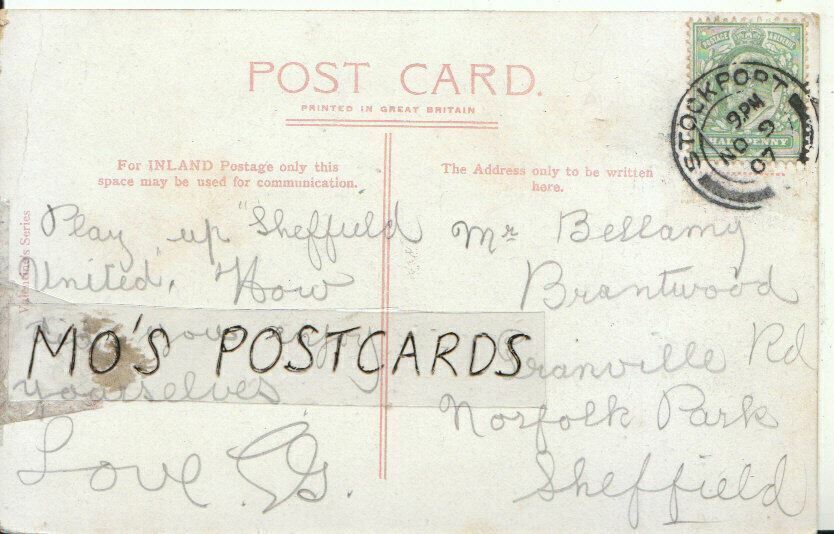 POST CARD.
PRINTED IN GREAT BRITAIN
For INLAND Postage only this
space may be used for communication.
The Address only to be written
here.
Valentine's Series
POSTAGE REVENUE
HALFPENNY
STOCKPORT
9 PM
NO 9
07
Play up "Sheffield
United." How
you enjoy
yourselves
Love
MO'S POSTCARDS
Mr Bellamy
Brantwood
Granville Rd
Norfolk Park
Sheffield